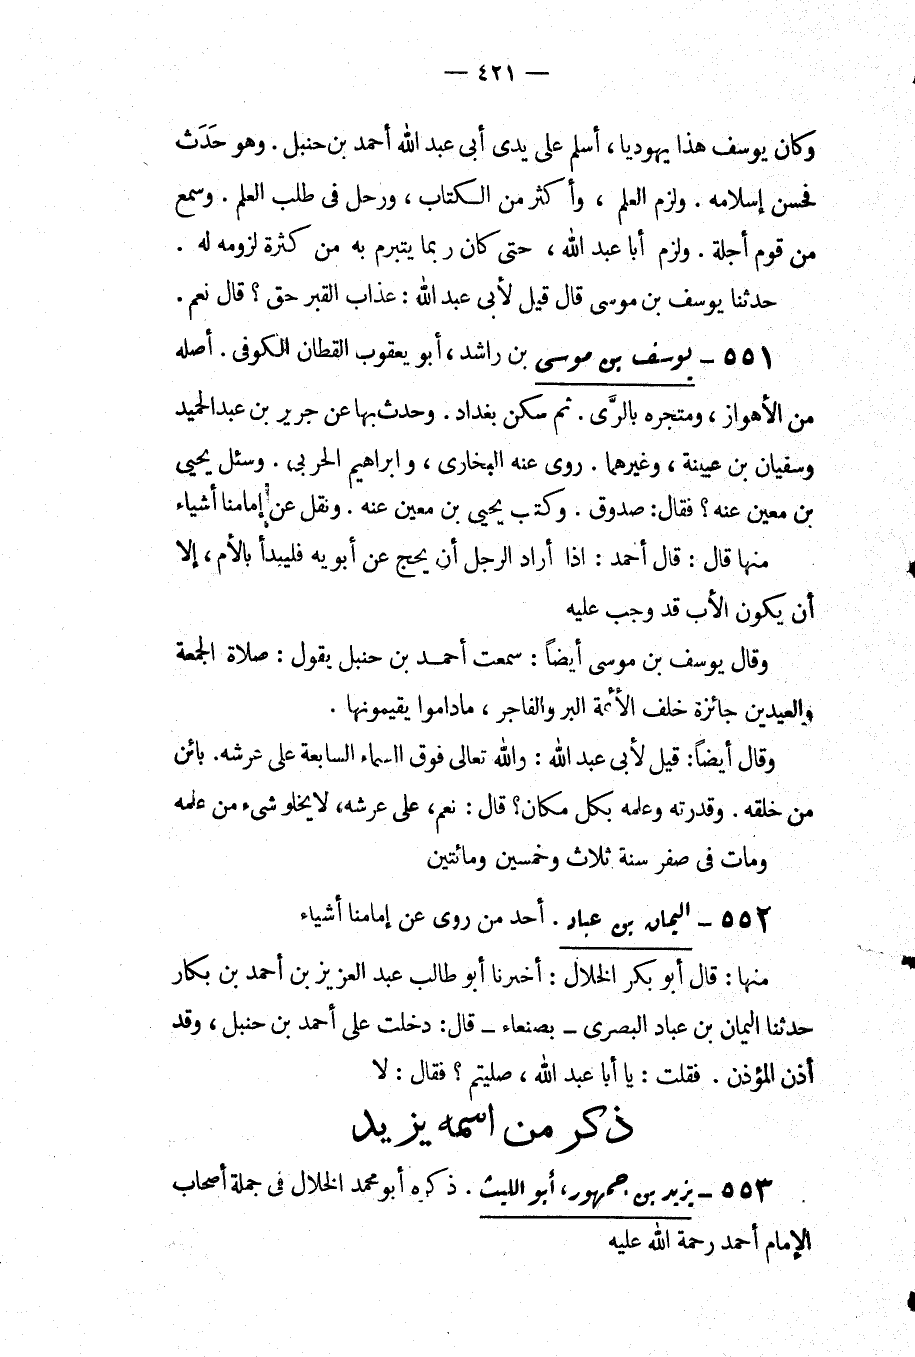 — ٤٢١ —
وكان يوسف هذا يهوديا، أسلم على يدى أبى عبد الله أحمد بن حنبل . وهو حَدَث
فحسن إسلامه . ولزم العلم ، وأكثر من الكتاب ، ورحل فى طلب العلم . وسمع
من قوم أجلة . ولزم أبا عبد الله ، حتى كان ربما يتبرم به من كثرة لزومه له .
حدثنا يوسف بن موسى قال قيل لأبى عبد الله : عذاب القبر حق ؟ قال نعم .
٥٥١ – يوسف بن موسى بن راشد ، أبو يعقوب القطان الكوفى . أصله
من الأهواز ، ومتجره بالرَّى . ثم سكن بغداد . وحدث بها عن جرير بن عبدالحميد
وسفيان بن عيينة ، وغيرهما . روى عنه البخارى ، وابراهيم الحربى . وسئل يحيى
بن معين عنه ؟ فقال: صدوق . وكتب يحيى بن معين عنه . ونقل عن إمامنا أشياء
منها قال : قال أحمد : اذا أراد الرجل أن يحج عن أبويه فليبدأ بالأم ، إلا
أن يكون الأب قد وجب عليه
وقال يوسف بن موسى أيضاً : سمعت أحمـد بن حنبل يقول : صلاة الجمعة
والعيدين جائزة خلف الأئمة البر والفاجر ، ماداموا يقيمونها .
وقال أيضاً: قيل لأبى عبد الله : والله تعالى فوق السماء السابعة على عرشه. بائن
من خلقه . وقدرته وعلمه بكل مكان؟ قال : نعم، على عرشه، لايخلو شىء من علمه
ومات فى صفر سنة ثلاث وخمسين ومائتين
٥٥٢ – اليمان بن عباد . أحد من روى عن إمامنا أشياء
منها : قال أبو بكر الخلال : أخبرنا أبو طالب عبد العزيز بن أحمد بن بكار
حدثنا اليمان بن عباد البصرى – بصنعاء – قال: دخلت على أحمد بن حنبل ، وقد
أذن المؤذن . فقلت : يا أبا عبد الله ، صليتم ؟ فقال : لا
ذكر من اسمه يزيد
٥٥٣ – يزيد بن جمهور، أبو الليث . ذكره أبو محمد الخلال فى جملة أصحاب
الإمام أحمد رحمة الله عليه